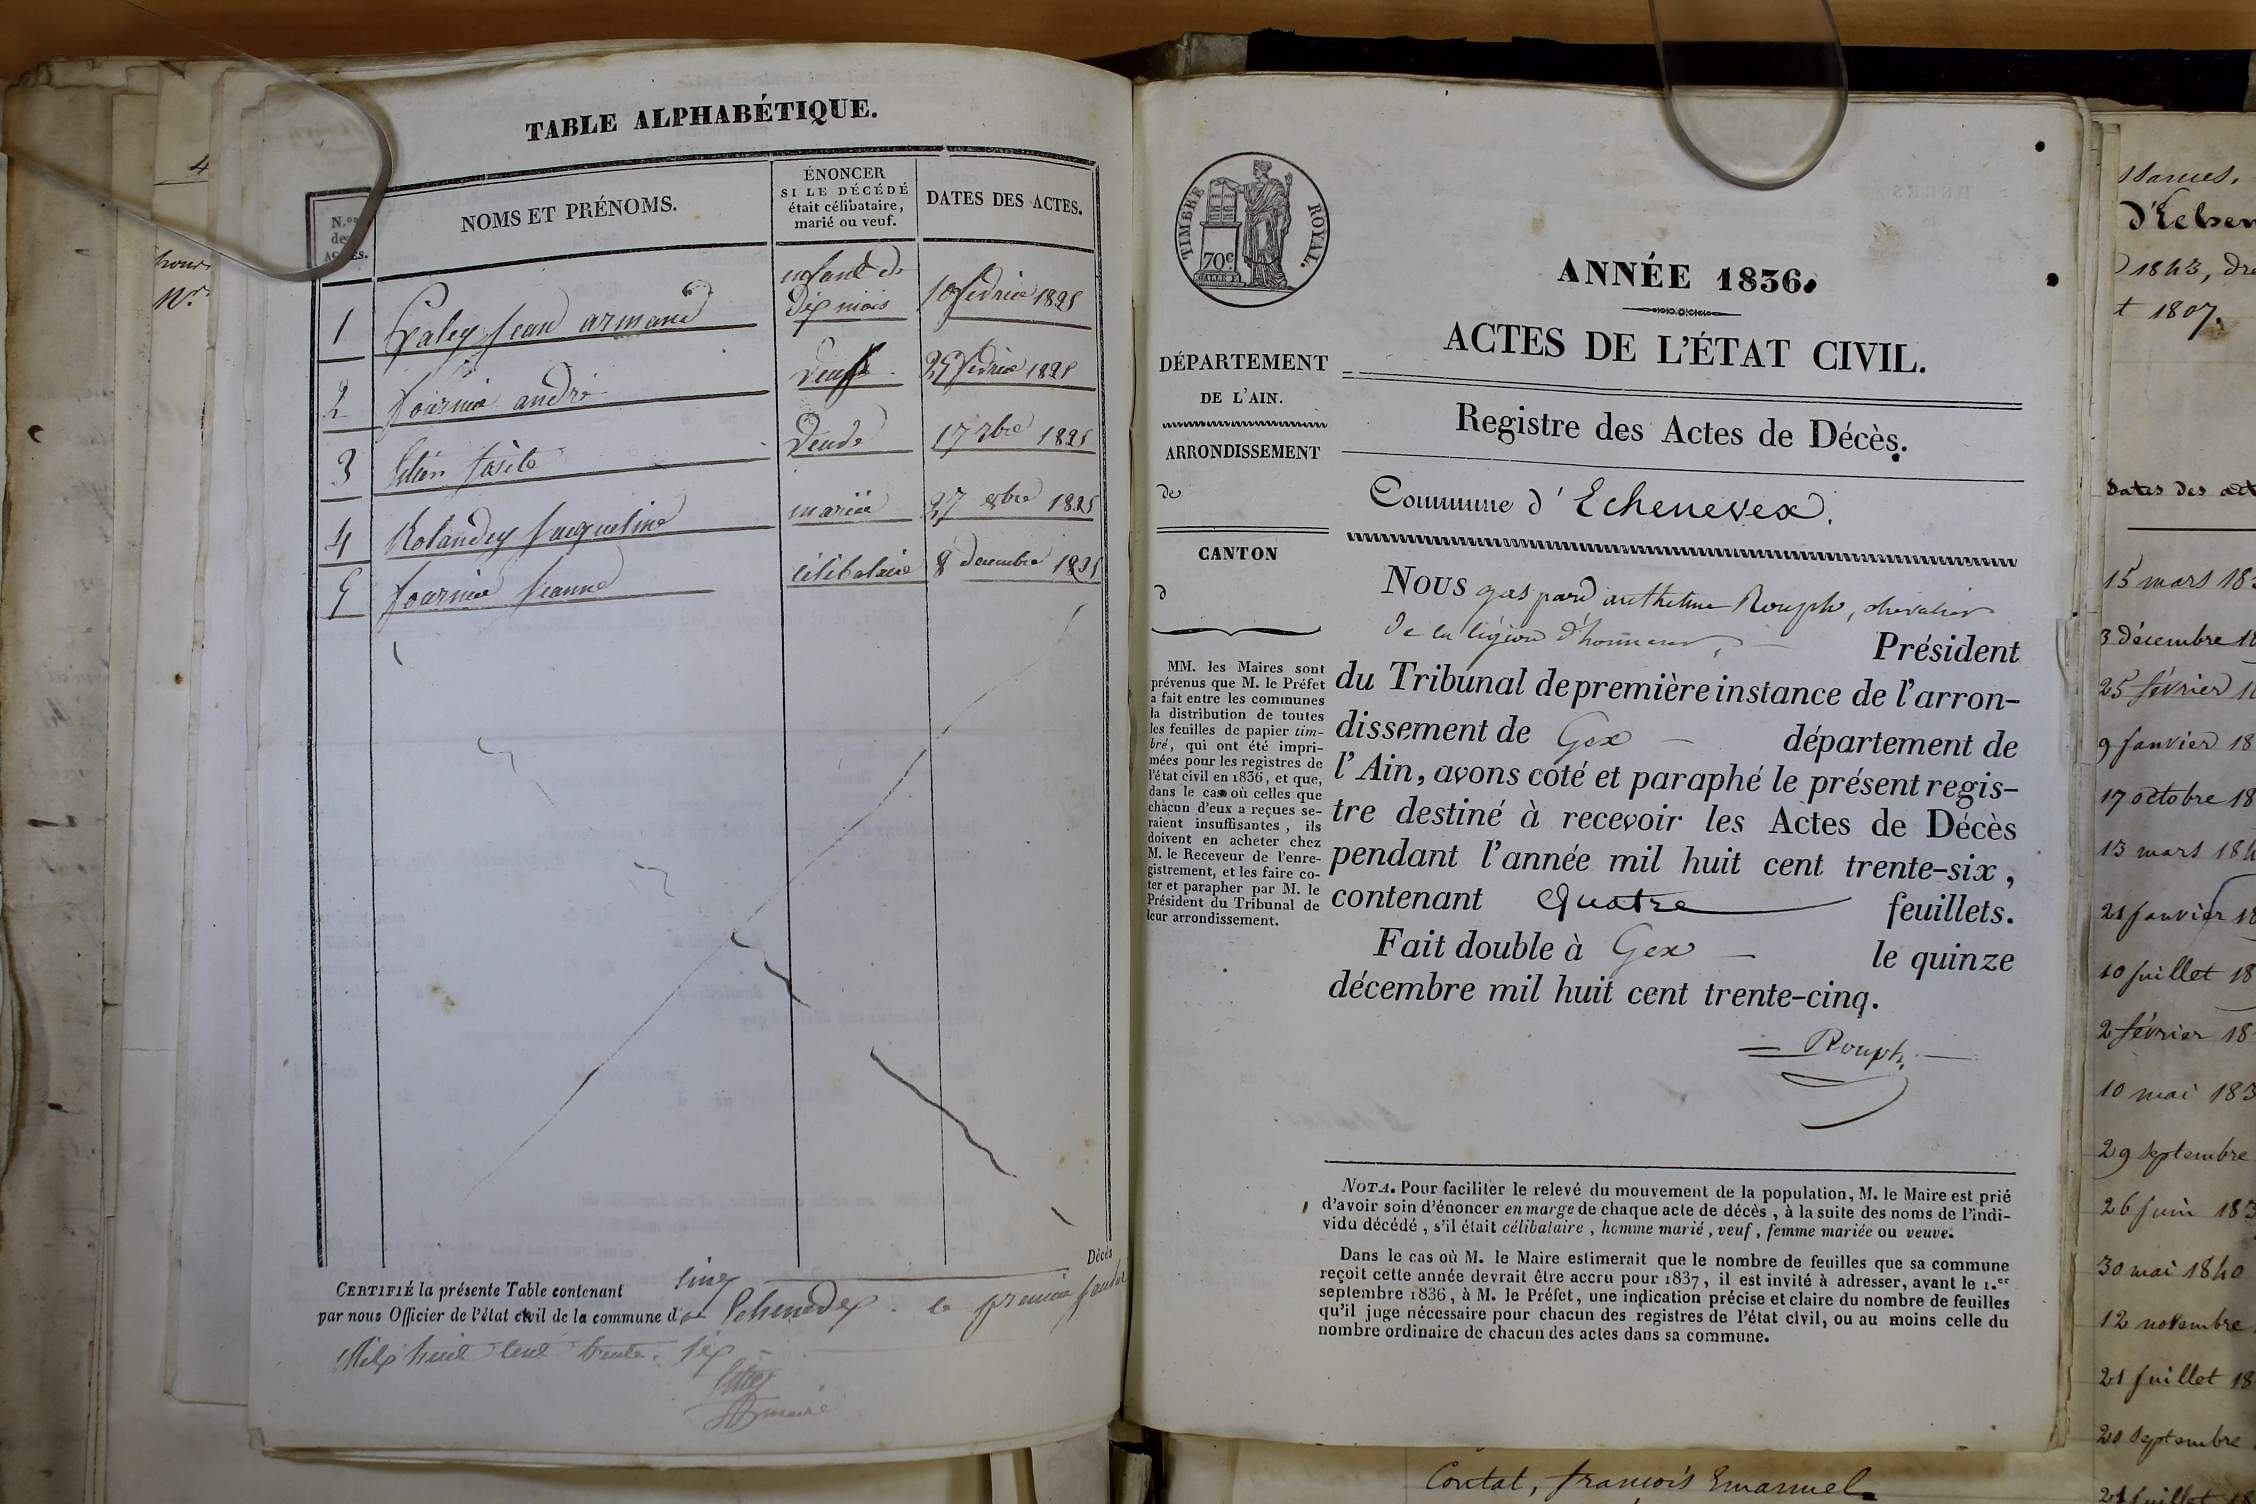 TABLE ALPHABÉTIQUE.
N.os des ACTES.
NOMS ET PRÉNOMS.
ÉNONCER
SI LE DÉCÉDÉ
était célibataire,
marié ou veuf.
DATES DES ACTES.
1 jean armand enfant de dix mois 10 1835
2 fournier andré veuf 25 1835
3 veuve 17 1835
4 Rolandez jacqueline mariée 27 1835
5 fournier jeanne célibataire 8 decembre 1835
CERTIFIÉ la présente Table contenant cinq Décès
par nous Officier de l'état civil de la commune d' Echenevex le premier janvier
mil huit cent trente six
maire
TIMBRE ROYAL.
70c
ANNÉE 1836.
ACTES DE L'ÉTAT CIVIL.
Registre des Actes de Décès.
Commune d'Echenevex.
DÉPARTEMENT
DE L'AIN.
ARRONDISSEMENT
de
CANTON
d
MM. les Maires sont
prévenus que M. le Préfet
a fait entre les communes
la distribution de toutes
les feuilles de papier tim-
bré, qui ont été impri-
mées pour les registres de
l'état civil en 1836, et que,
dans le cas où celles que
chacun d'eux a reçues se-
raient insuffisantes, ils
doivent en acheter chez
M. le Receveur de l'enre-
gistrement, et les faire co-
ter et parapher par M. le
Président du Tribunal de
leur arrondissement.
NOUS gaspard anthelme Rouph, chevalier
de la légion d'honneur, Président
du Tribunal de première instance de l'arron-
dissement de Gex département de
l'Ain, avons coté et paraphé le présent regis-
tre destiné à recevoir les Actes de Décès
pendant l'année mil huit cent trente-six,
contenant quatre feuillets.
Fait double à Gex le quinze
décembre mil huit cent trente-cinq.
Rouph
NOTA. Pour faciliter le relevé du mouvement de la population, M. le Maire est prié
d'avoir soin d'énoncer en marge de chaque acte de décès, à la suite des noms de l'indi-
vidu décédé, s'il était célibataire, homme marié, veuf, femme mariée ou veuve.
Dans le cas où M. le Maire estimerait que le nombre de feuilles que sa commune
reçoit cette année devrait être accru pour 1837, il est invité à adresser, avant le 1.er
septembre 1836, à M. le Préfet, une indication précise et claire du nombre de feuilles
qu'il juge nécessaire pour chacun des registres de l'état civil, ou au moins celle du
nombre ordinaire de chacun des actes dans sa commune.
d'Echen
1843, dre
t 1807.
Dates des act
15 mars 18
3 décembre 18
25 février 18
9 janvier 18
17 octobre 18
13 mars 18
21 janvier 18
10 juillet 18
2 février 18
10 mai 183
29 septembre
26 juin 183
30 mai 1840
12 novembre
21 juillet 18
20 septembre
21 juillet 18
Contat, françois Emanuel